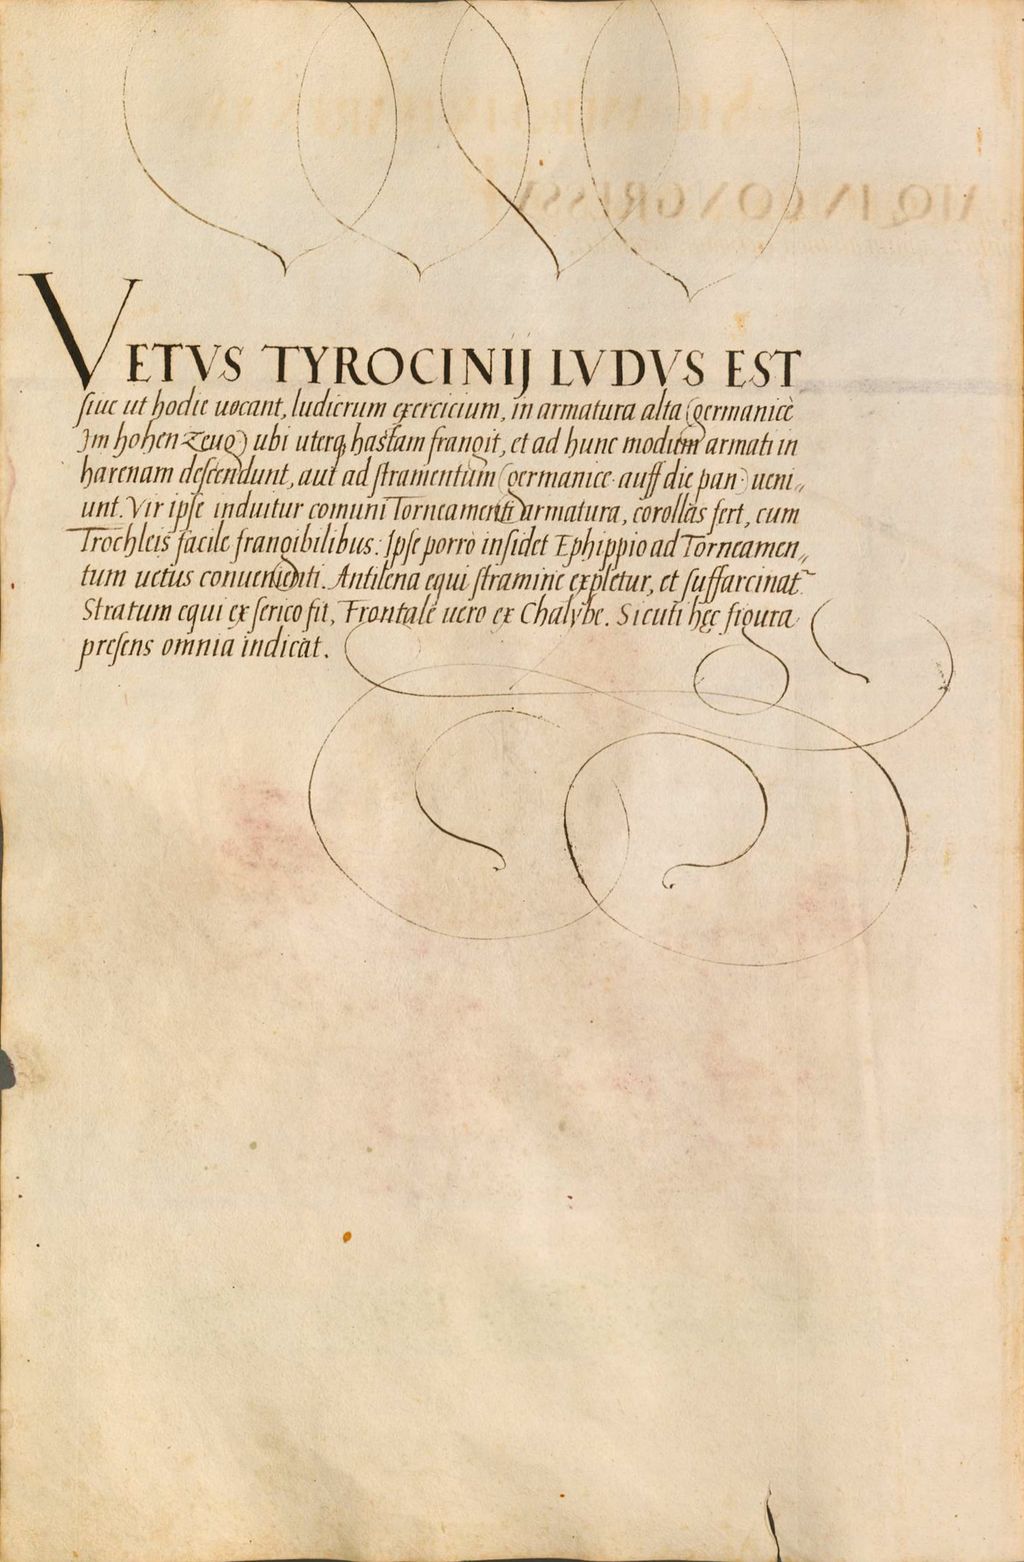 VETVS TYROCINIJ LVDVS EST
siue ut hodie uocant, ludicrum exercicium, in armatura alta (germanicè
Im hohen Zeug) ubi uterq, hastam frangit, et ad hunc modum armati in
harenam descendunt, aut ad stramentum (germanice auff die pan) ueni„
unt. Vir ipse induitur comuni Torneamenti armatura, corollas fert, cum
Trochleis facile frangibilibus: Ipse porro insidet Ephippio ad Torneamen„
tum uetus conuenienti. Antilena equi stramine expletur, et suffarcinat~
Stratum equi ex serico fit, Frontale uero ex Chalybe. Sicuti hęc figura
presens omnia indicat.